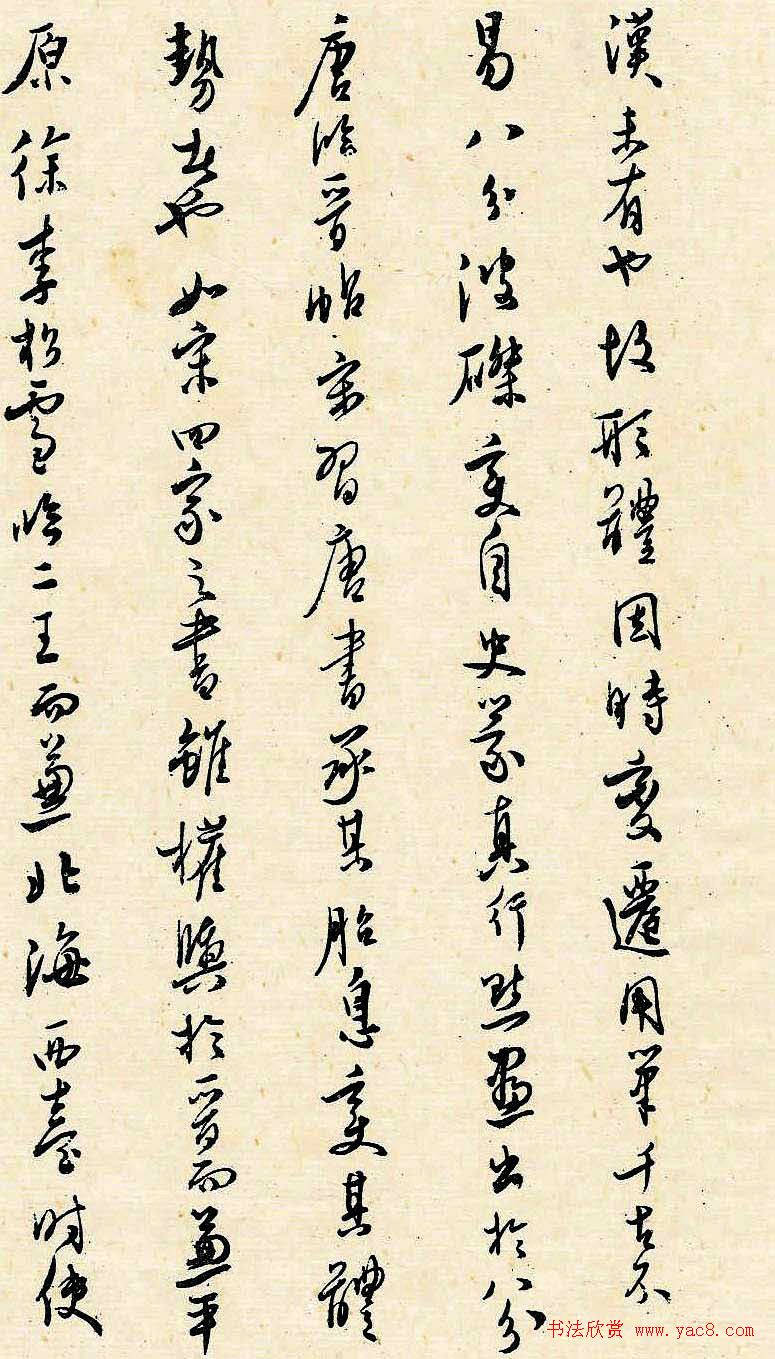 漢未有也故形體因時變遷用筆千古不
易八分波磔變自史篆真行點畫出於八分
唐臨晉帖宋習唐書承其胎息變其體
勢者也如宋四家之書雖權輿於晉而兼平
原徐李松雪臨二王而兼北海西臺時使
书法欣赏 www.yac8.com